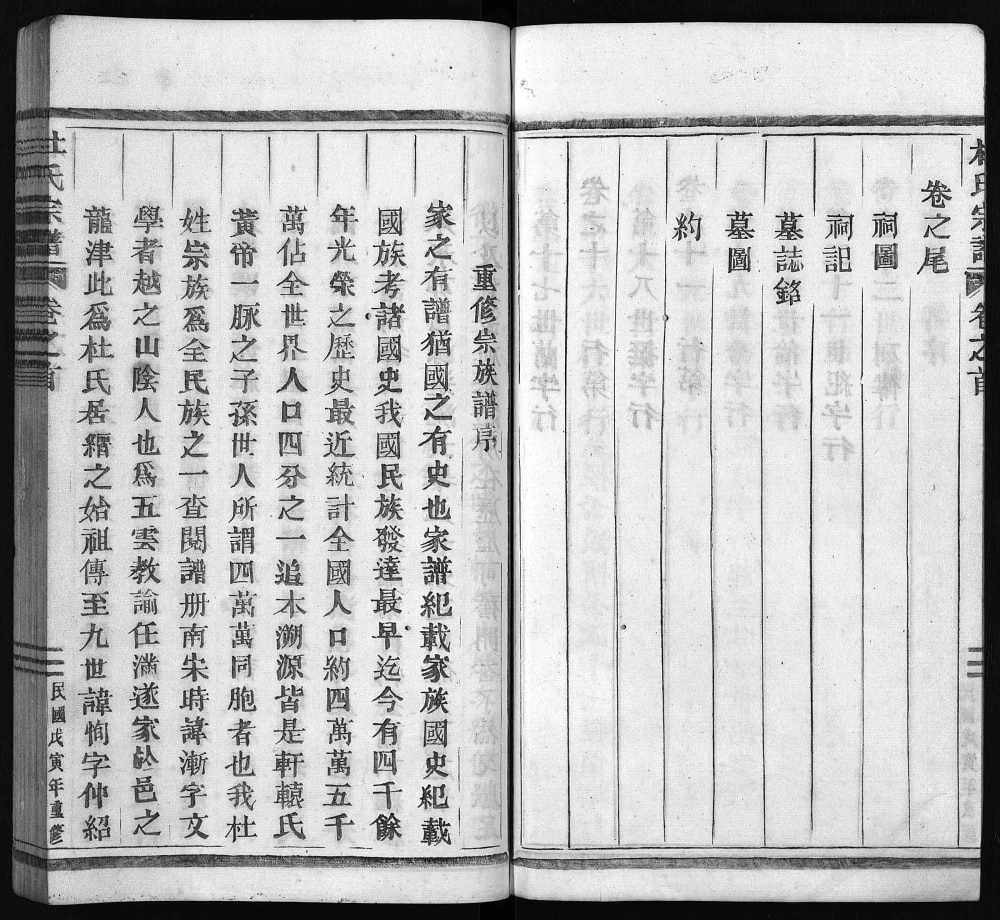 杜氏宗譜 卷之首
卷之尾
祠圖
祠記
墓誌銘
墓圖
約
重修宗族譜序
家之有譜猶國之有史也家譜紀載家族國史紀載
國族考諸國史我國民族發達最早迄今有四千餘
年光榮之歷史最近統計全國人口約四萬萬五千
萬佔全世界人口四分之一追本溯源皆是軒轅氏
黃帝一脉之子孫世人所謂四萬萬同胞者也我杜
姓宗族爲全民族之一查閱譜册南宋時諱漸字文
學者越之山陰人也爲五雲教諭任滿遂家於邑之
龍津此爲杜氏居縉之始祖傳至九世諱恂字仲紹
杜氏宗譜 卷之首 二 民國戊寅年重修